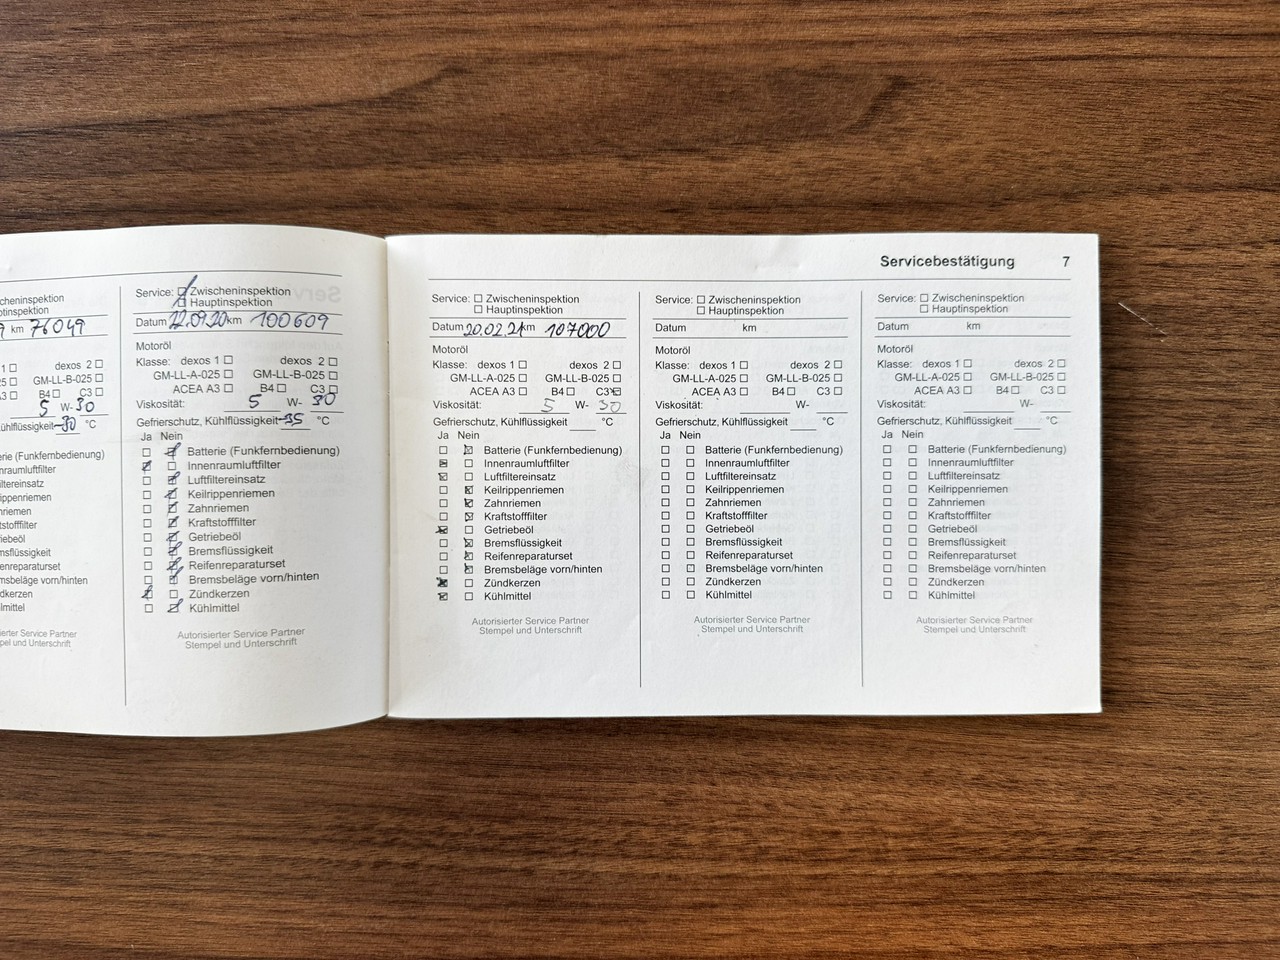 scheninspektion
ptinspektion
9 km 76049
1 ☐ dexos 2 ☐
25 ☐ GM-LL-B-025 ☐
A3 ☐ B4 ☐ C3 ☐
5 W- 30
ühlflüssigkeit -30 °C
erie (Funkfernbedienung)
enraumluftfilter
filtereinsatz
rippenriemen
nriemen
tstofffilter
iebeöl
msflüssigkeit
enreparaturset
msbeläge vorn/hinten
dkerzen
lmittel
sierter Service Partner
pel und Unterschrift
Service: ☐ Zwischeninspektion
☐ Hauptinspektion
Datum 22.09.20 km 100609
Motoröl
Klasse: dexos 1 ☐ dexos 2 ☐
GM-LL-A-025 ☐ GM-LL-B-025 ☐
ACEA A3 ☐ B4 ☐ C3 ☒
Viskosität: 5 W- 30
Gefrierschutz, Kühlflüssigkeit -35 °C
Ja Nein
☐ ☒ Batterie (Funkfernbedienung)
☒ ☐ Innenraumluftfilter
☐ ☒ Luftfiltereinsatz
☐ ☒ Keilrippenriemen
☐ ☒ Zahnriemen
☐ ☒ Kraftstofffilter
☐ ☒ Getriebeöl
☐ ☒ Bremsflüssigkeit
☐ ☒ Reifenreparaturset
☐ ☒ Bremsbeläge vorn/hinten
☒ ☐ Zündkerzen
☐ ☒ Kühlmittel
Autorisierter Service Partner
Stempel und Unterschrift
Servicebestätigung 7
Service: ☐ Zwischeninspektion
☐ Hauptinspektion
Datum 20.02.21 km 107000
Motoröl
Klasse: dexos 1 ☐ dexos 2 ☐
GM-LL-A-025 ☐ GM-LL-B-025 ☐
ACEA A3 ☐ B4 ☐ C3 ☒
Viskosität: 5 W- 30
Gefrierschutz, Kühlflüssigkeit ____ °C
Ja Nein
☐ ☒ Batterie (Funkfernbedienung)
☒ ☐ Innenraumluftfilter
☒ ☐ Luftfiltereinsatz
☐ ☒ Keilrippenriemen
☐ ☒ Zahnriemen
☐ ☒ Kraftstofffilter
☒ ☐ Getriebeöl
☐ ☒ Bremsflüssigkeit
☐ ☒ Reifenreparaturset
☐ ☒ Bremsbeläge vorn/hinten
☒ ☐ Zündkerzen
☒ ☐ Kühlmittel
Autorisierter Service Partner
Stempel und Unterschrift
Service: ☐ Zwischeninspektion
☐ Hauptinspektion
Datum km
Motoröl
Klasse: dexos 1 ☐ dexos 2 ☐
GM-LL-A-025 ☐ GM-LL-B-025 ☐
ACEA A3 ☐ B4 ☐ C3 ☐
Viskosität: ____ W- ____
Gefrierschutz, Kühlflüssigkeit ____ °C
Ja Nein
☐ ☐ Batterie (Funkfernbedienung)
☐ ☐ Innenraumluftfilter
☐ ☐ Luftfiltereinsatz
☐ ☐ Keilrippenriemen
☐ ☐ Zahnriemen
☐ ☐ Kraftstofffilter
☐ ☐ Getriebeöl
☐ ☐ Bremsflüssigkeit
☐ ☐ Reifenreparaturset
☐ ☐ Bremsbeläge vorn/hinten
☐ ☐ Zündkerzen
☐ ☐ Kühlmittel
Autorisierter Service Partner
Stempel und Unterschrift
Service: ☐ Zwischeninspektion
☐ Hauptinspektion
Datum km
Motoröl
Klasse: dexos 1 ☐ dexos 2 ☐
GM-LL-A-025 ☐ GM-LL-B-025 ☐
ACEA A3 ☐ B4 ☐ C3 ☐
Viskosität: ____ W- ____
Gefrierschutz, Kühlflüssigkeit ____ °C
Ja Nein
☐ ☐ Batterie (Funkfernbedienung)
☐ ☐ Innenraumluftfilter
☐ ☐ Luftfiltereinsatz
☐ ☐ Keilrippenriemen
☐ ☐ Zahnriemen
☐ ☐ Kraftstofffilter
☐ ☐ Getriebeöl
☐ ☐ Bremsflüssigkeit
☐ ☐ Reifenreparaturset
☐ ☐ Bremsbeläge vorn/hinten
☐ ☐ Zündkerzen
☐ ☐ Kühlmittel
Autorisierter Service Partner
Stempel und Unterschrift